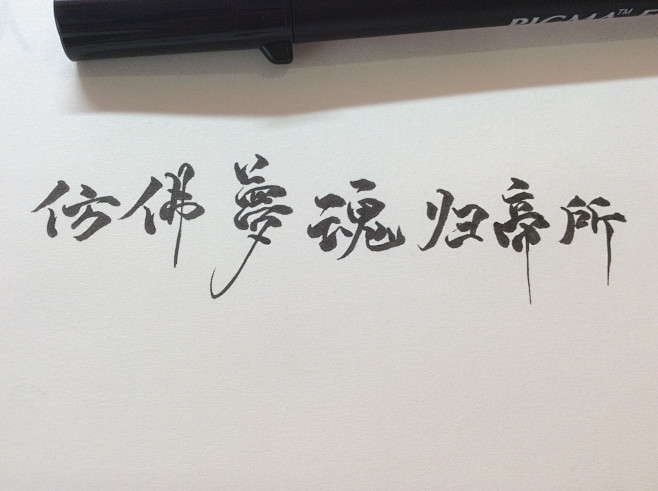 PIGMA™
仿佛夢魂归帝所